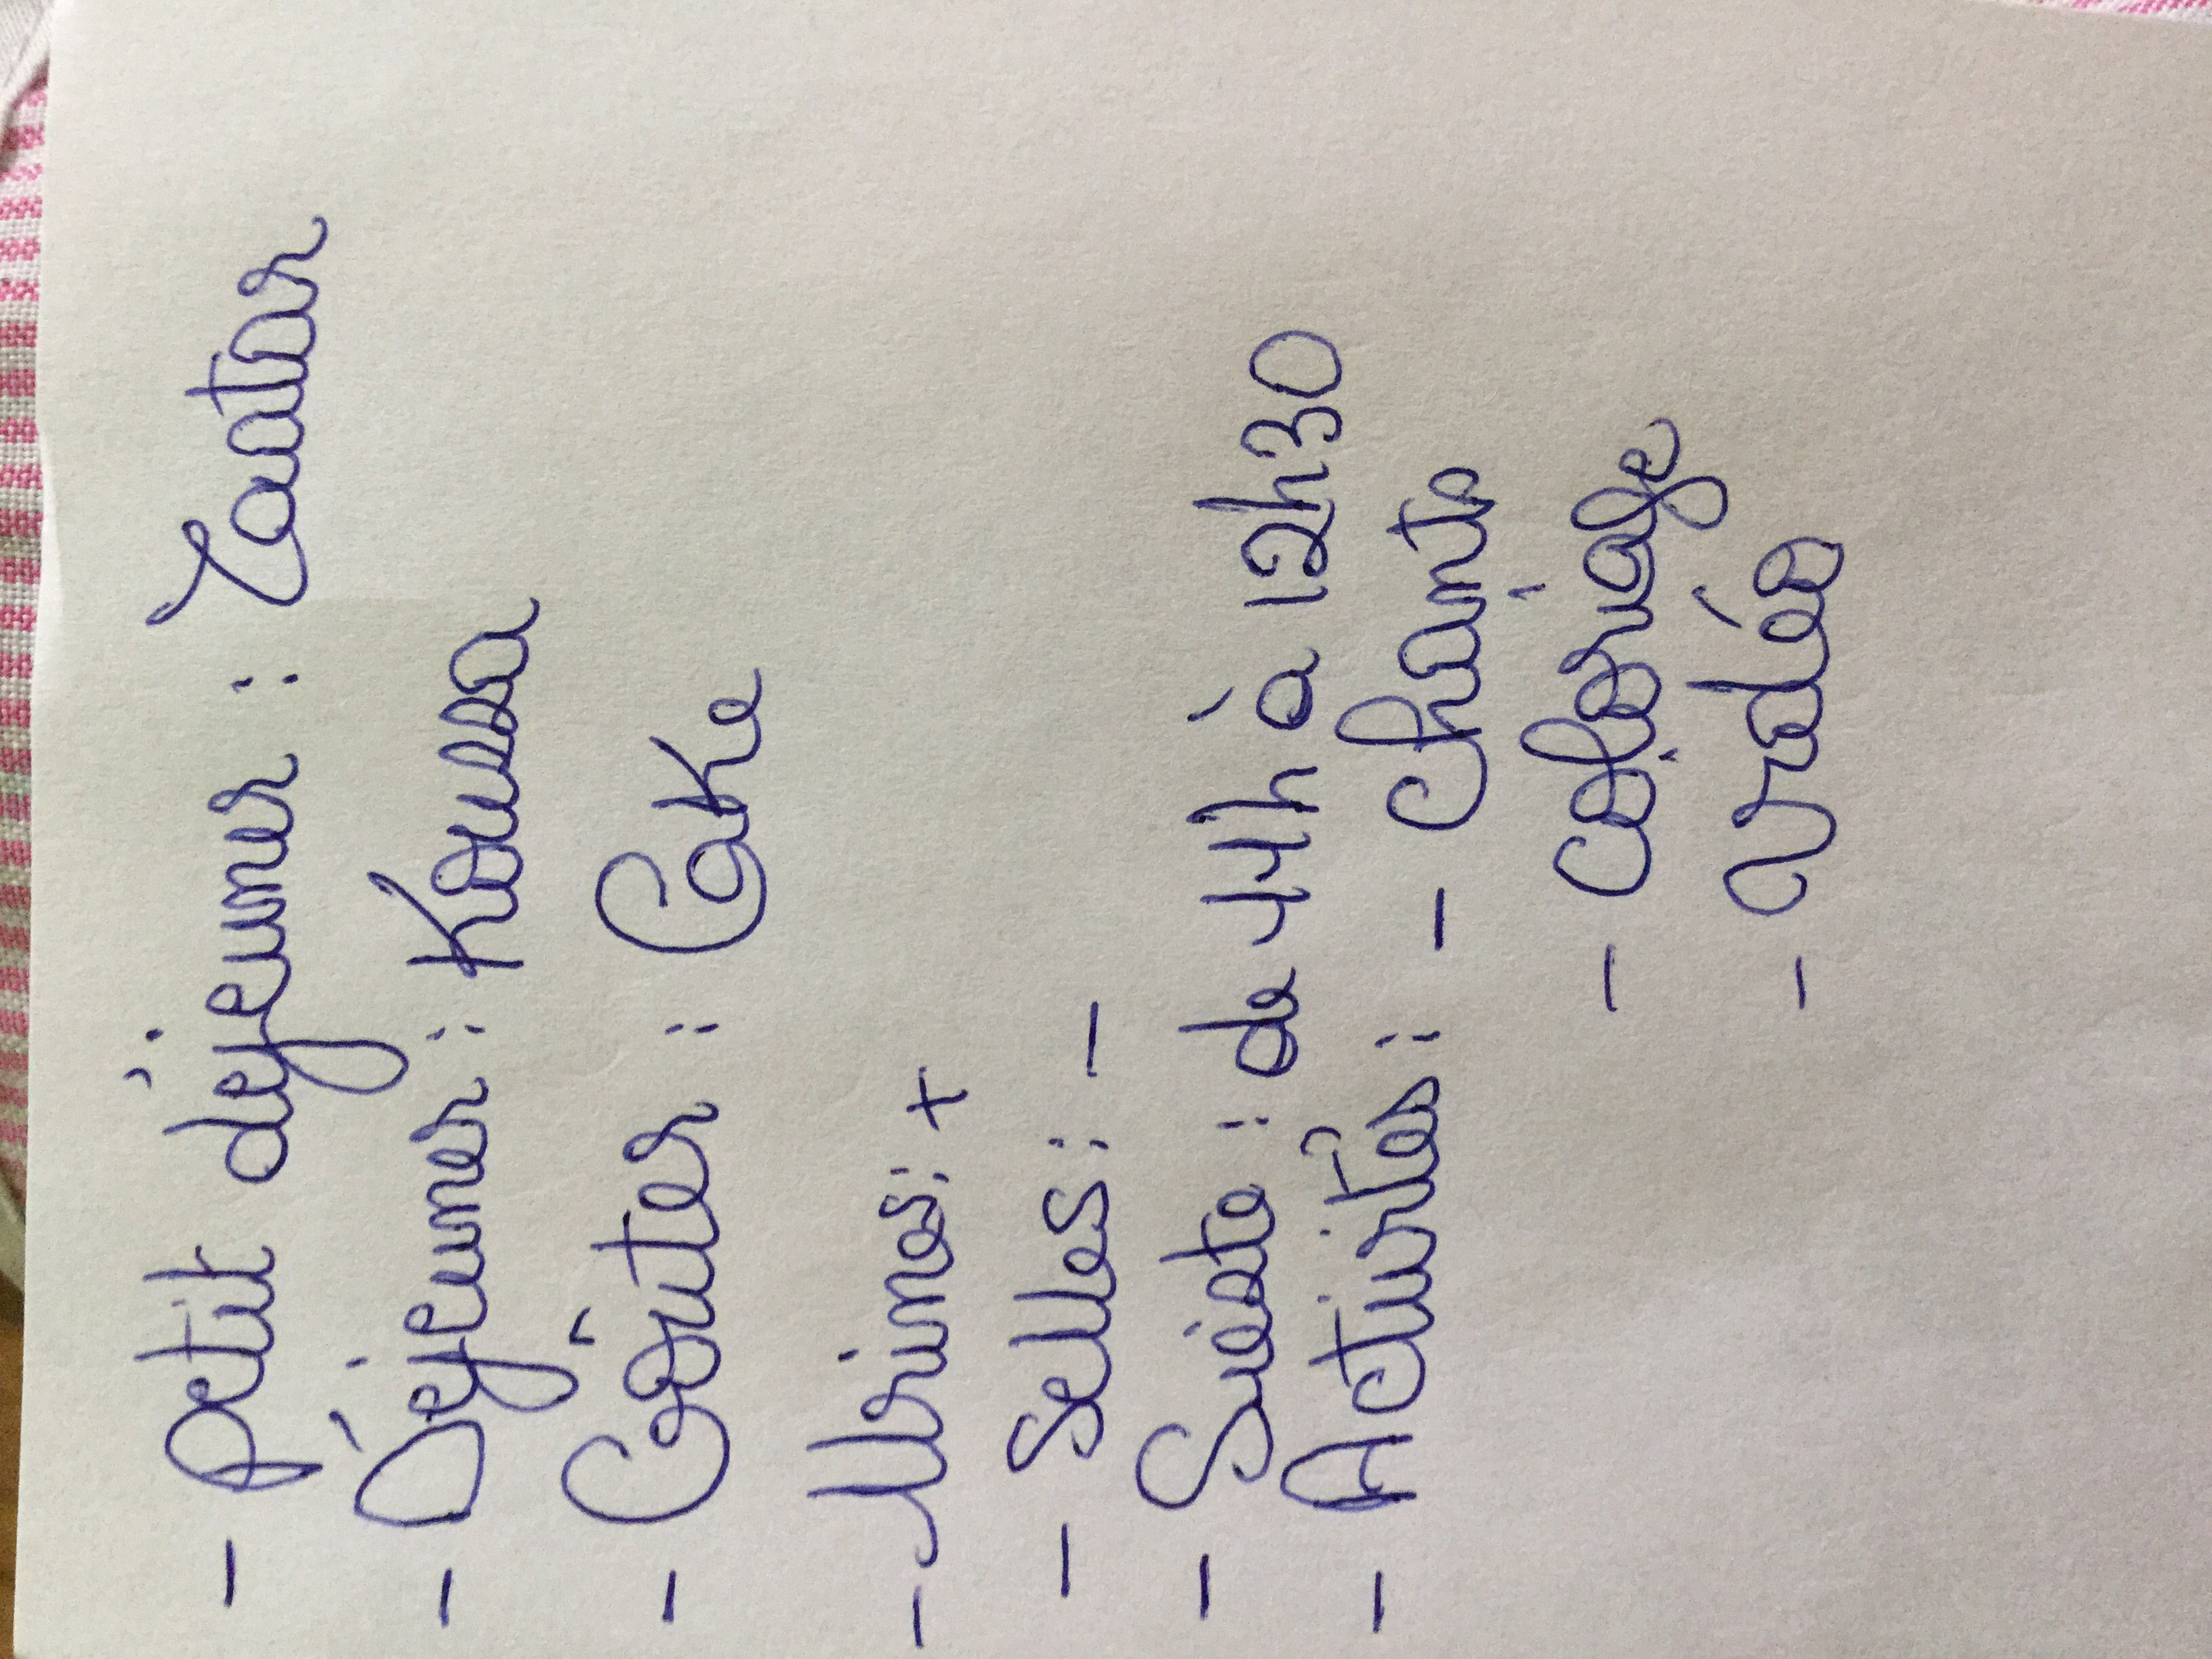 - Petit déjeuner : Zaatar
- Déjeuner : Koussa
- Goûter : Cake
- Urines : +
- Selles : -
- Sieste : de 11h à 12h30
- Activités : - Chants
- Coloriage
- Vidéo